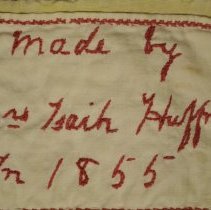 made by
rs Isaih Huff
In 1855